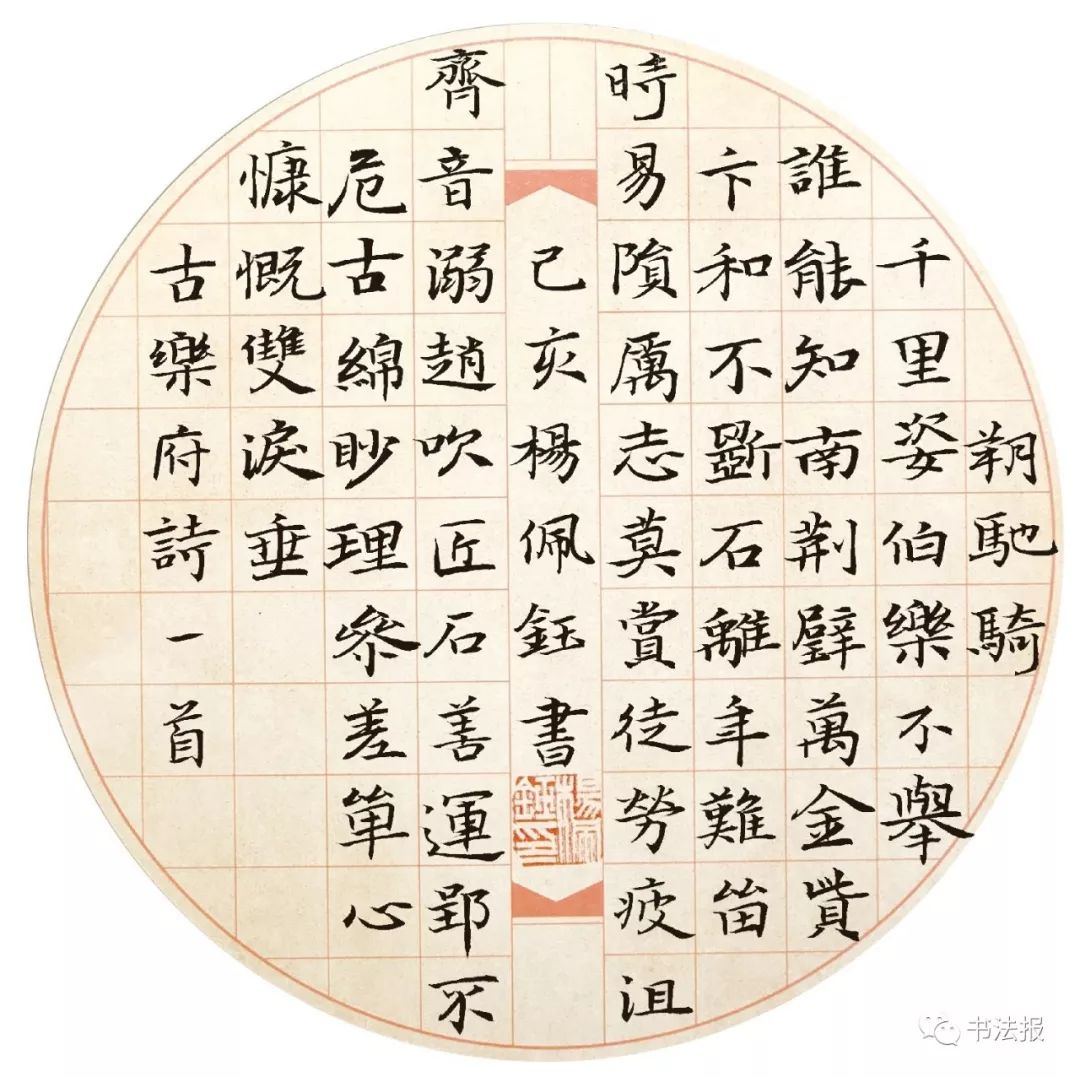 朔馳騎
千里姿伯樂不舉
誰能知南荆璧萬金貲
卞和不斲石離年難畄
時易隕厲志莫賞徒勞疲沮
己亥楊佩鈺書
楊佩鈺印
齊音溺趙吹匠石善運郢不
危古綿眇理參差單心
慷慨雙淚垂
古樂府詩一首
书法报